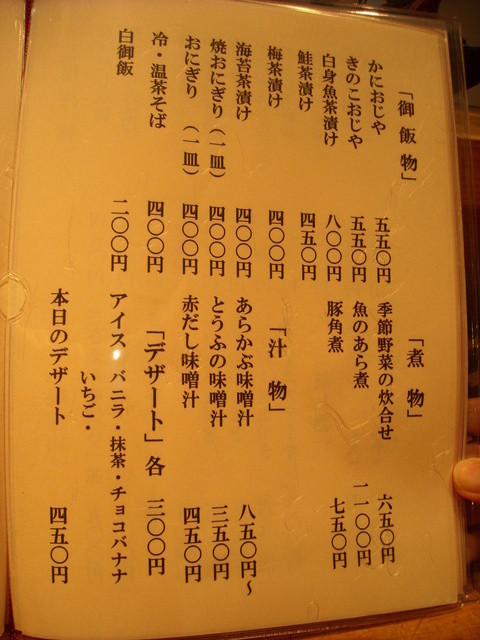 「御飯物」
かにおじや 五五〇円
きのこおじや 五五〇円
白身魚茶漬け 八〇〇円
鮭茶漬け 四五〇円
梅茶漬け 四〇〇円
海苔茶漬け 四〇〇円
焼おにぎり（一皿） 四〇〇円
おにぎり（一皿） 四〇〇円
冷・温茶そば 四〇〇円
白御飯 二〇〇円
「煮物」
季節野菜の炊合せ 六五〇円
魚のあら煮 一一〇〇円
豚角煮 七五〇円
「汁物」
あらかぶ味噌汁 八五〇円～
とうふの味噌汁 三五〇円
赤だし味噌汁 四五〇円
「デザート」各 三〇〇円
アイス バニラ・抹茶・チョコバナナ
いちご・
本日のデザート 四五〇円